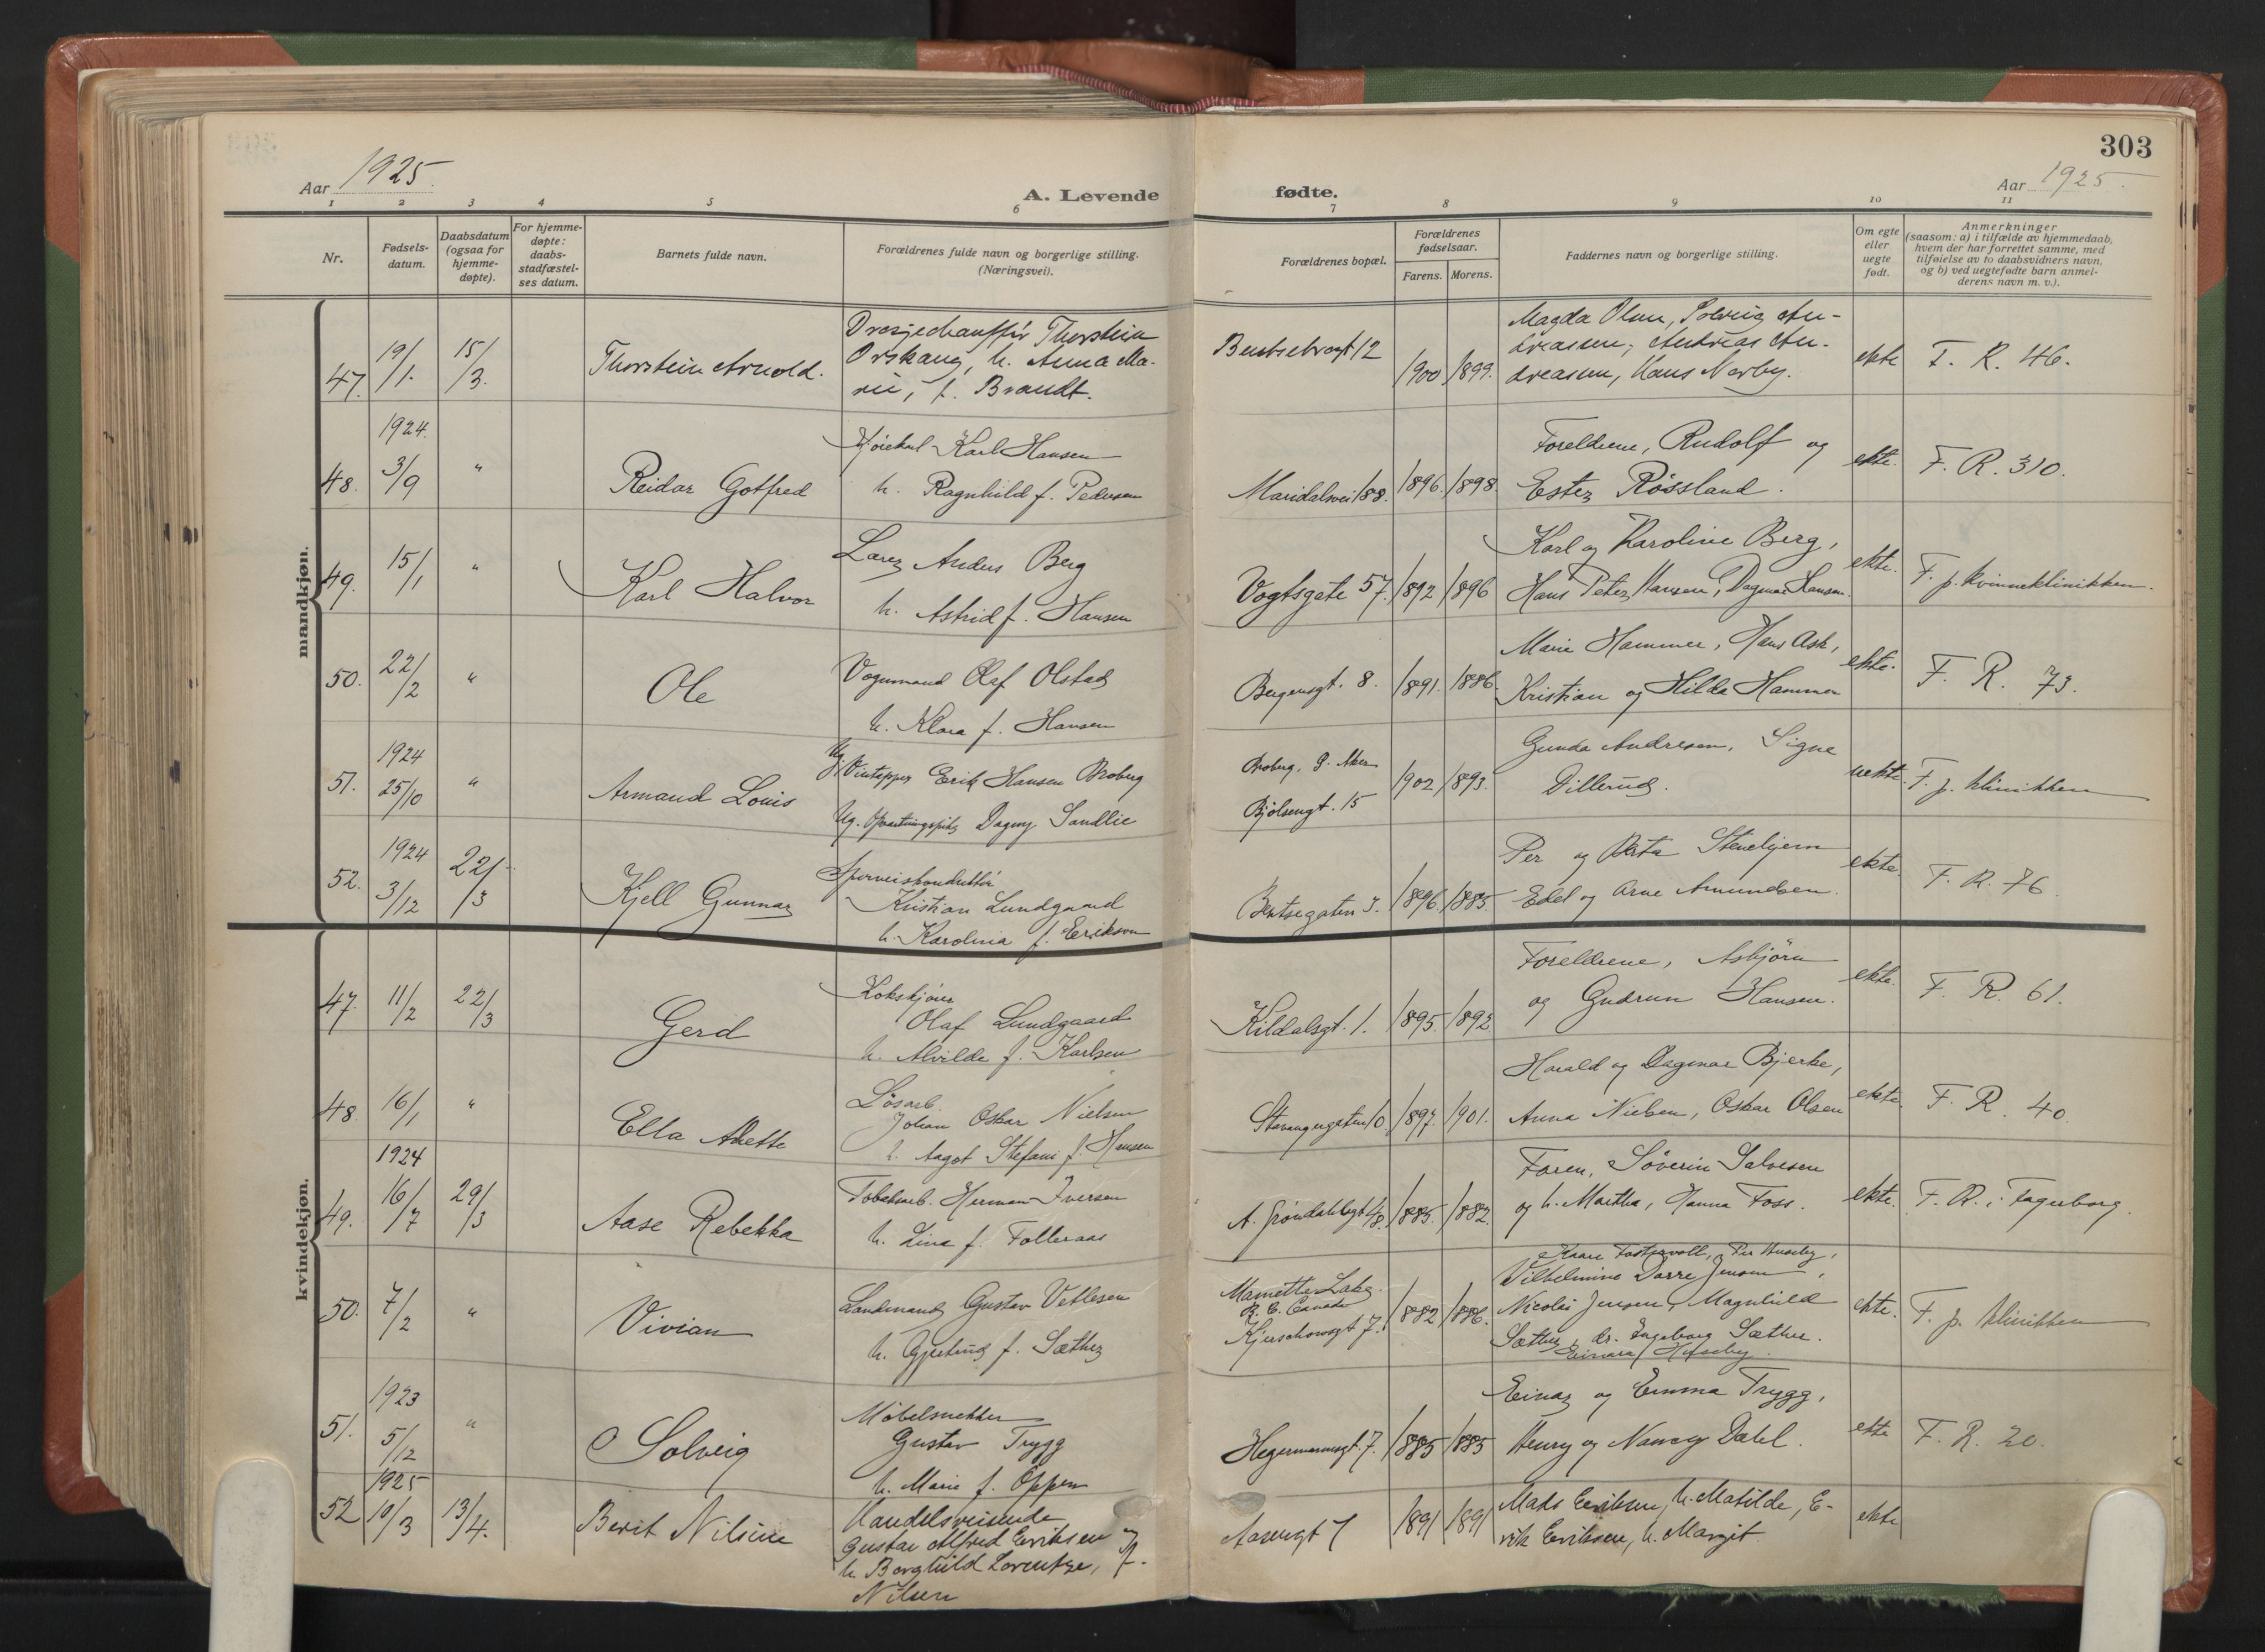 303
Aar 1925.
A. Levende
fødte.
Aar 1925.
1 2 3 4 5 6 7 8 9 10 11
Nr.
Fødsels-
datum.
Daabsdatum
(ogsaa for
hjemme-
døpte).
For hjemme-
døpte:
daabs-
stadfæstel-
ses datum.
Barnets fulde navn.
Forældrenes fulde navn og borgerlige stilling.
(Næringsvei).
Forældrenes bopæl.
Forældrenes
fødselsaar.
Farens. Morens.
Faddernes navn og borgerlige stilling.
Om egte
eller
uegte
født.
Anmerkninger
(saasom: a) i tilfælde av hjemmedaab,
hvem der har forrettet samme, med
tilføielse av to daabsvidners navn,
og b) ved uegtefødte barn anmel-
derens navn m. v.).
mandkjøn.
47. 19/1. 15/3. Thorstein Arnold.
Drosjechauffør Thorstein
Orskaug, h. Anna Ma-
rie, f. Brandt.
Bentsebrogt 12
1900 1899.
Magda Olsen, Solveig An-
dreassen, Andreas An-
dreassen, Hans Nerby.
ekte F. R. 46.
48. 1924. 3/9 " Reidar Gotfred
Karl Hansen
h. Ragnhild f. Pedersen
Maridalsvei 188. 1896. 1898.
Foreldrene, Rudolf og
Ester Røssland.
ekte. F. R. 310.
49. 15/1 " Karl Halvor
Anders Berg
h. Astrid f. Hansen
Vogtsgate 57. 1892 1896
Karl og Karoline Berg,
Hans Peter Hansen, Dagmar Hansen.
ekte. F. p. kvinneklinikken.
50. 22/2 " Ole
Vognmand Olaf Olstad
h. Klara f. Hansen
Bergensgt. 8. 1891. 1886.
Marie Hammer, Hans Ask,
Kristian og Hilda Hammer
ekte. F. R. 73.
51. 1924 25/10 " Armand Louis
Ug. Vintapper Erik Hansen Broberg
Ug. Opvartningspike Dagny Sandlie
Broberg, Ø. Aker
Bjølsengt. 15
1902 1893.
Gunda Andresen, Signe
Dillerud.
uekte. F. p. klinikken
52. 1924 3/12 22/3 Kjell Gunnar
Sporveiskonduktør
Kristian Lundgaard
h. Karolina f. Erikson
Bentsegaten 3. 1896. 1885.
Per og Berta Stenehjem
Edel og Arne Amundsen.
ekte. F. R. 76.
kvindekjøn.
47. 11/2 22/3 Gerd
Kokskjører
Olaf Lundgaard
h. Alvilde f. Karlsen
Kildalsgt. 1. 1895. 1892
Foreldrene, Asbjørn
og Gudrun Hansen.
ekte. F. R. 61.
48. 16/1 " Ella Anette
Løsarb.
Johan Oskar Nielsen
h. Aagot Stefani f. Hansen
Stavangergaten 10. 1897. 1901.
Harald og Dagmar Bjerke,
Anna Nielsen, Oskar Olsen
ekte. F. R. 40.
49. 1924 16/7 29/3 Aase Rebekka
Tobaksarb. Herman Iversen
h. Lina f. Folleraas
48. 1885. 1882.
Faren, Søverin Salvesen
og h. Martha, Hanna Foss.
ekte. F. R. i Fagerborg.
50. 7/2 " Vivian
Landmand Gustav Vetlesen
h. Gjertrud f. Sæther
Mamette Lake
B. C. Canada
Kjerschowsgt 7. 1882 1886.
Kaare Fostervoll, Per Huseby,
Vilhelmine Dorre Jensen,
Nicolai Jensen, Magnhild
Sæther, dr. Ingeborg Sæther.
Einara Huseby.
ekte. F. p. klinikken
51. 1923 5/12 " Solveig
Møbelsnekker
Gustav Trygg
h. Marie f. Oppen
Hegermannsgt. 7. 1885 1885
Einar og Emma Trygg,
Henry og Nancy Dahl.
ekte F. R. 20.
52 1925 10/3 13/4. Berit Nilsine
Handelsreisende
Gustav Alfred Eriksen og
h. Borghild Lorentze, f.
Nilsen
Aasengt 7 1891 1891
Mads Eriksen, h. Matilde, E-
rik Eriksen, h. Margit.
ekte